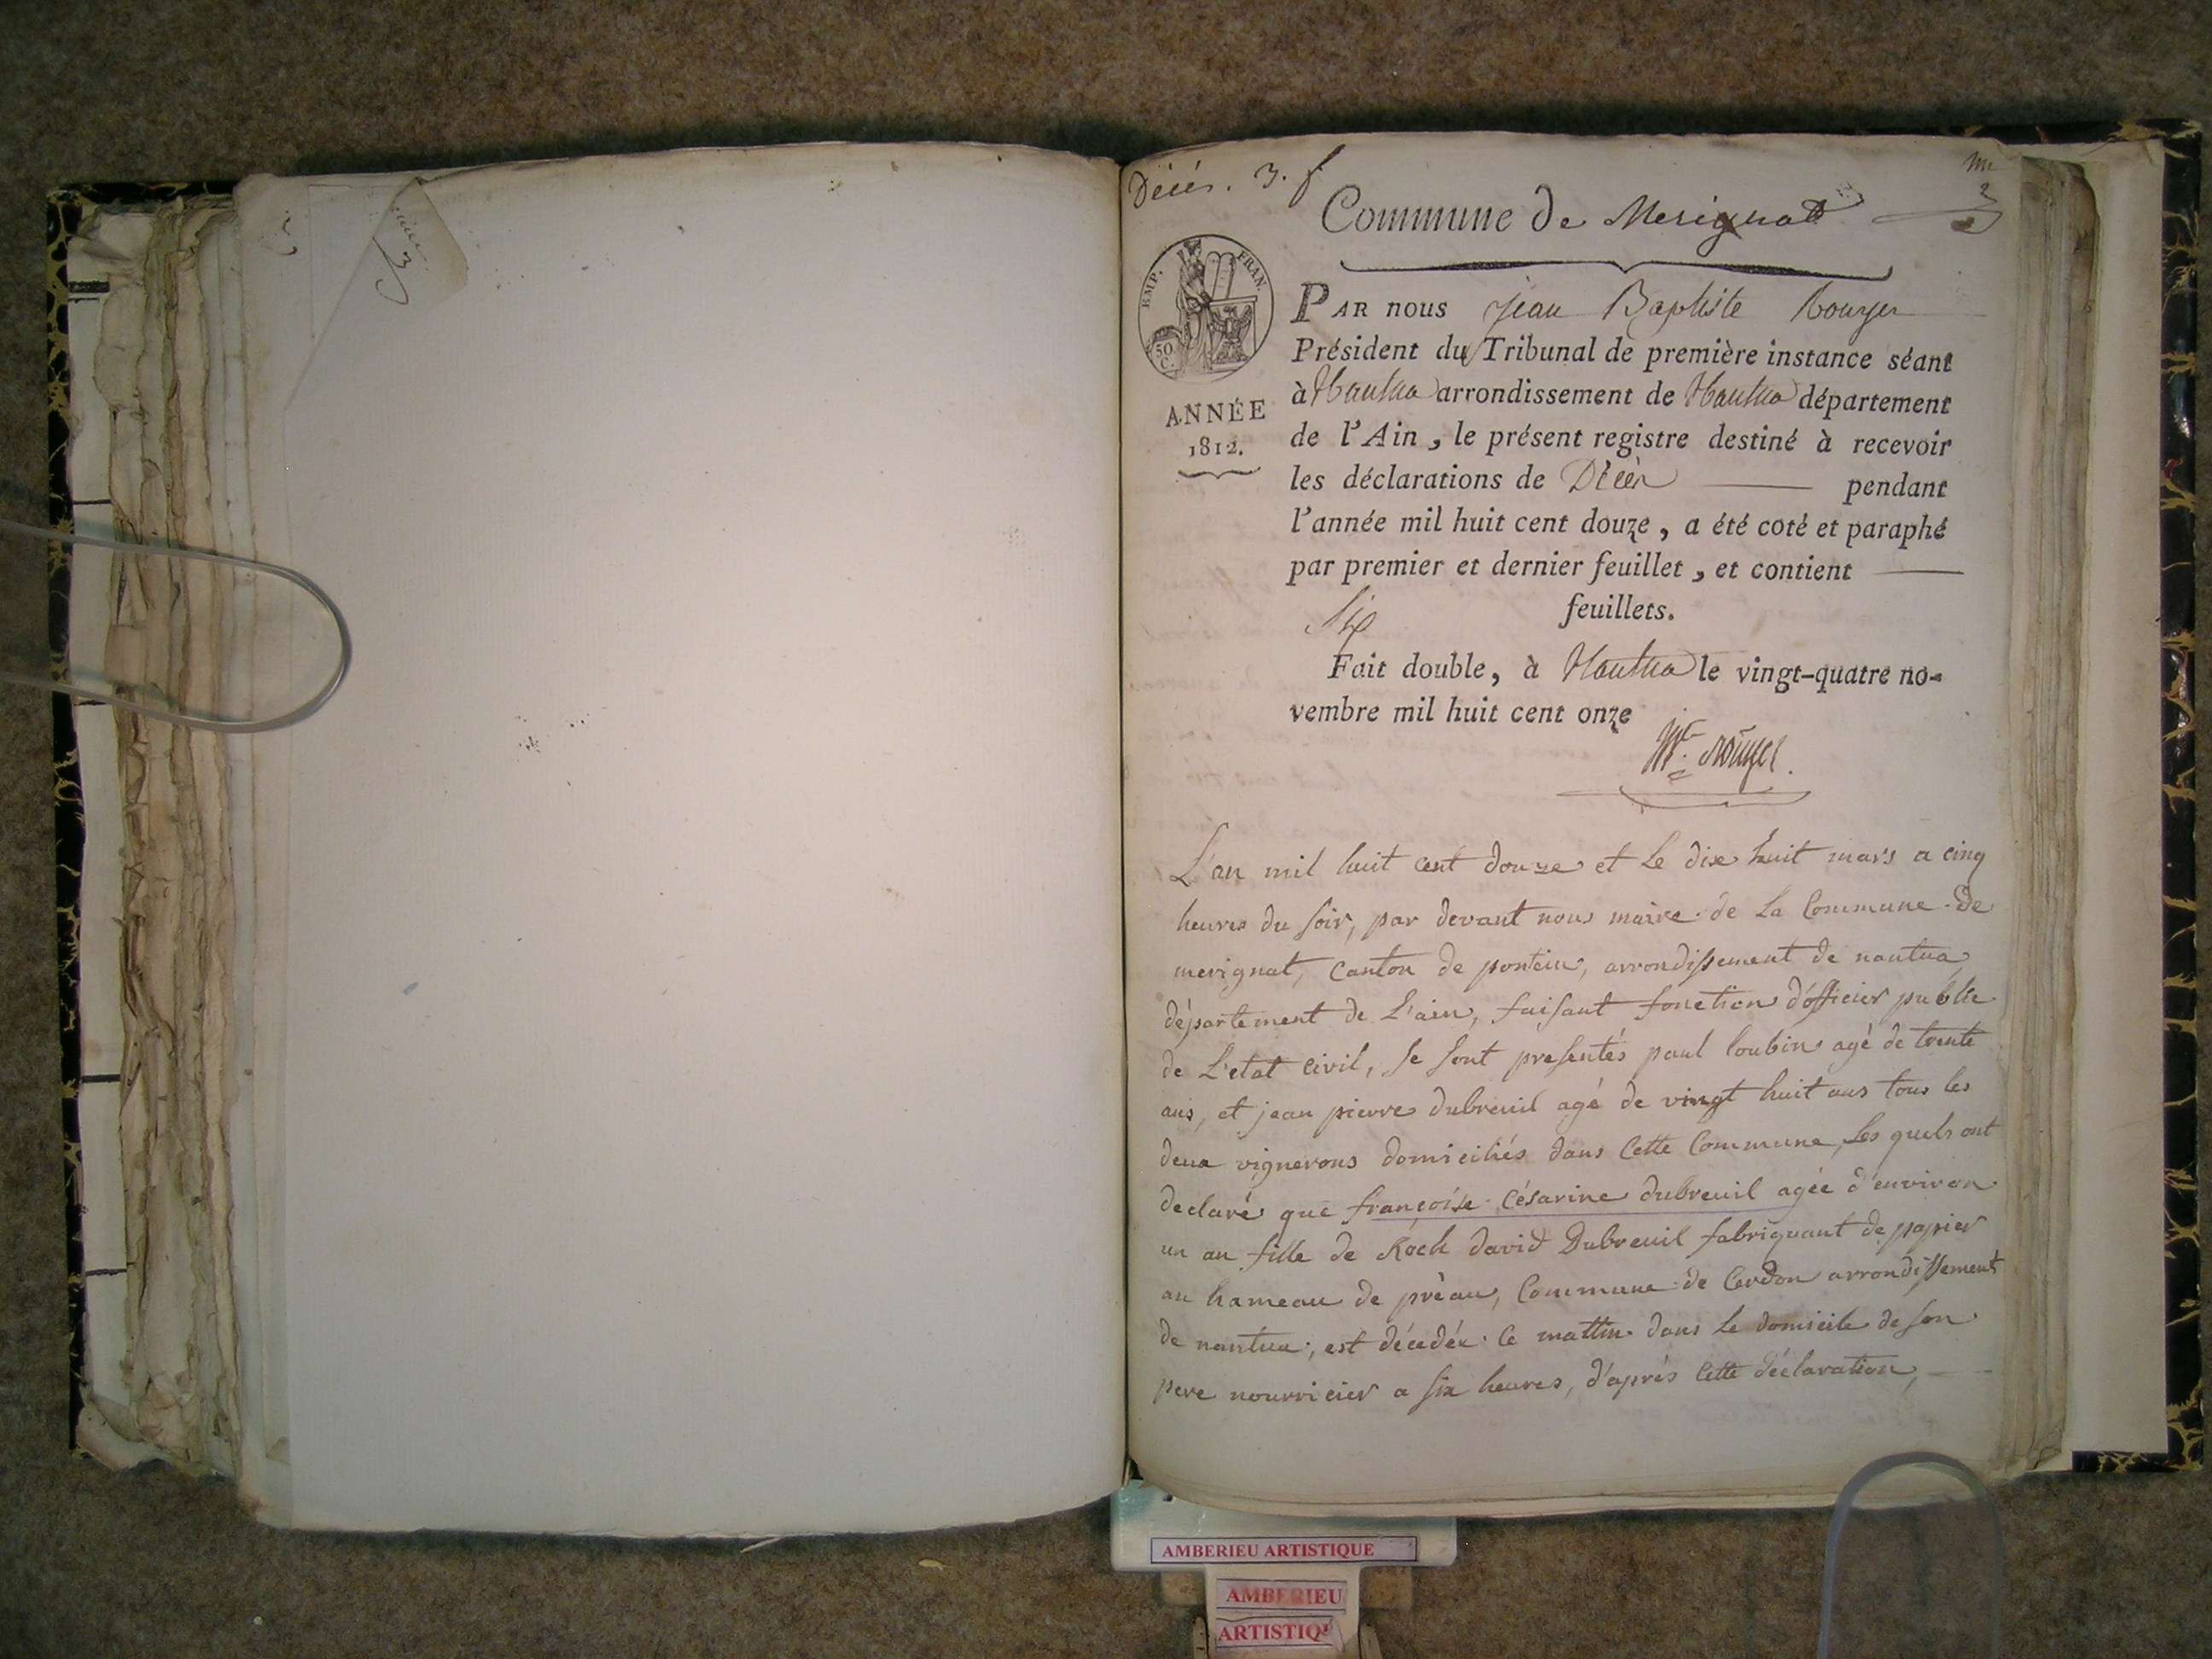 Décès. 3. f
Commune de Merignat
EMP. FRAN.
50
C.
ANNÉE
1812.
PAR nous jean Baptiste Rouyer
Président du Tribunal de première instance séant
à Nantua arrondissement de Nantua département
de l'Ain, le présent registre destiné à recevoir
les déclarations de Décès pendant
l'année mil huit cent douze, a été coté et paraphé
par premier et dernier feuillet, et contient
Six feuillets.
Fait double, à Nantua le vingt-quatre no-
vembre mil huit cent onze
Rouyer
L'an mil huit cent douze et Le dix huit mars a cinq
heures du soir, par devant nous maire de La Commune de
merignat, Canton de poncin, arrondissement de nantua
département de L'ain, faisant fonction d'officier public
de L'etat civil, se sont presentés paul loubin agé de trente
ans, et jean pierre dubreuil agé de vingt huit ans tous les
deux vignerons domiciliés dans Cette Commune, les quels ont
declaré que françoise Césarine dubreuil agée d'environ
un an fille de Roch david Dubreuil fabriquant de papier
au hameau de préau, Commune de Cerdon arrondissement
de nantua, est décedée Ce mattin dans Le domicile de son
pere nourricier a six heures, d'aprés Cette déclaration,
AMBERIEU ARTISTIQUE
AMBERIEU
ARTISTIQ